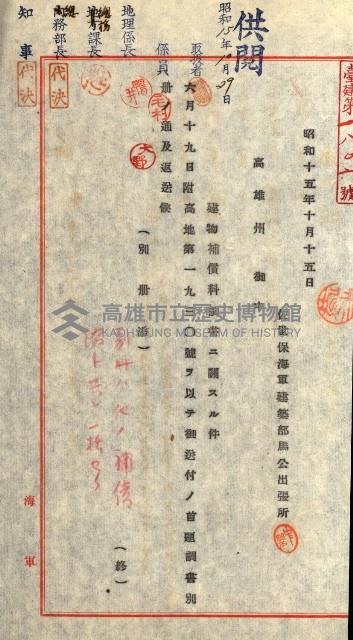 供閱
臺建第一八四一號
昭和十五年十月十五日
佐世保海軍建築部馬公出張所
高雄州御中
建物補償料調書ニ關スル件
六月十九日附高地第一九三〇號ヲ以テ御送付ノ首題調書別
冊ノ通及返送候
(別冊添)
(終)
昭和15年10月29日
取扱者
係員
地理係長
地方課長
總務部長
知事
代決
代決
大野
海軍
高雄市立歷史博物館
KAOHSIUNG MUSEUM OF HISTORY